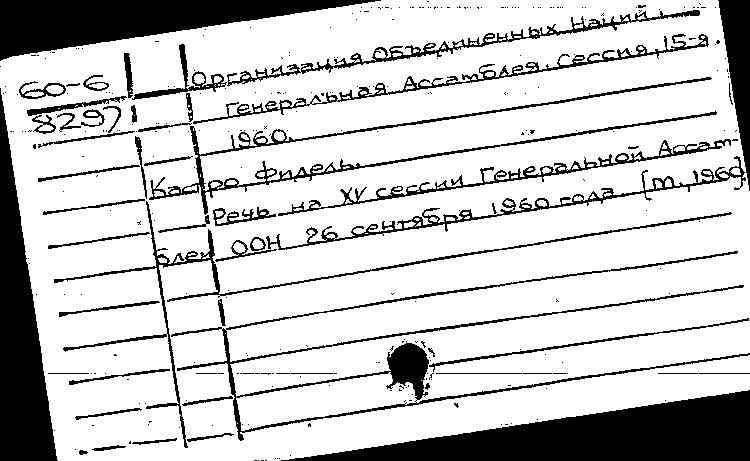 60-6
8297
Организация Объединенных Наций.
Генеральная Ассамблея. Сессия, 15-я.
1960.
Кастро, Фидель.
Речь на XV сессии Генеральной Ассам-
блеи ООН 26 сентября 1960 года. [М., 1960]